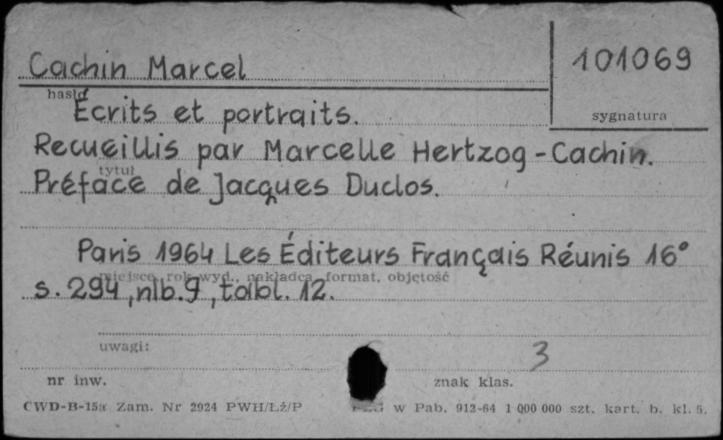 Cachin Marcel
101069
hasło
sygnatura
Écrits et portraits.
Recueillis par Marcelle Hertzog-Cachin.
tytuł
Préface de Jacques Duclos.
Paris 1964 Les Éditeurs Français Réunis 16°
miejsce, rok wyd., nakładca, format, objętość
s. 294, nlb. 9, tabl. 12.
uwagi:
3
nr inw.
znak klas.
CWD-B-15a Zam. Nr 2924 PWH/Łź/P
w Pab. 912-64 1 000 000 szt. kart. b. kl. 5.